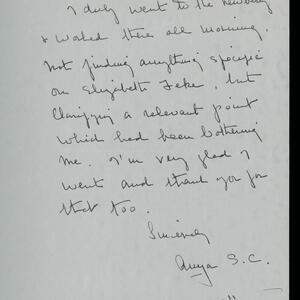 I duly went to the Newberry
& worked there all morning,
not finding anything specific
on Elizabeth Feke, but
clarifying a relevant point
which had been bothering
me. I'm very glad I
went and thank you for
that too.
Sincerely
Anya S.C.